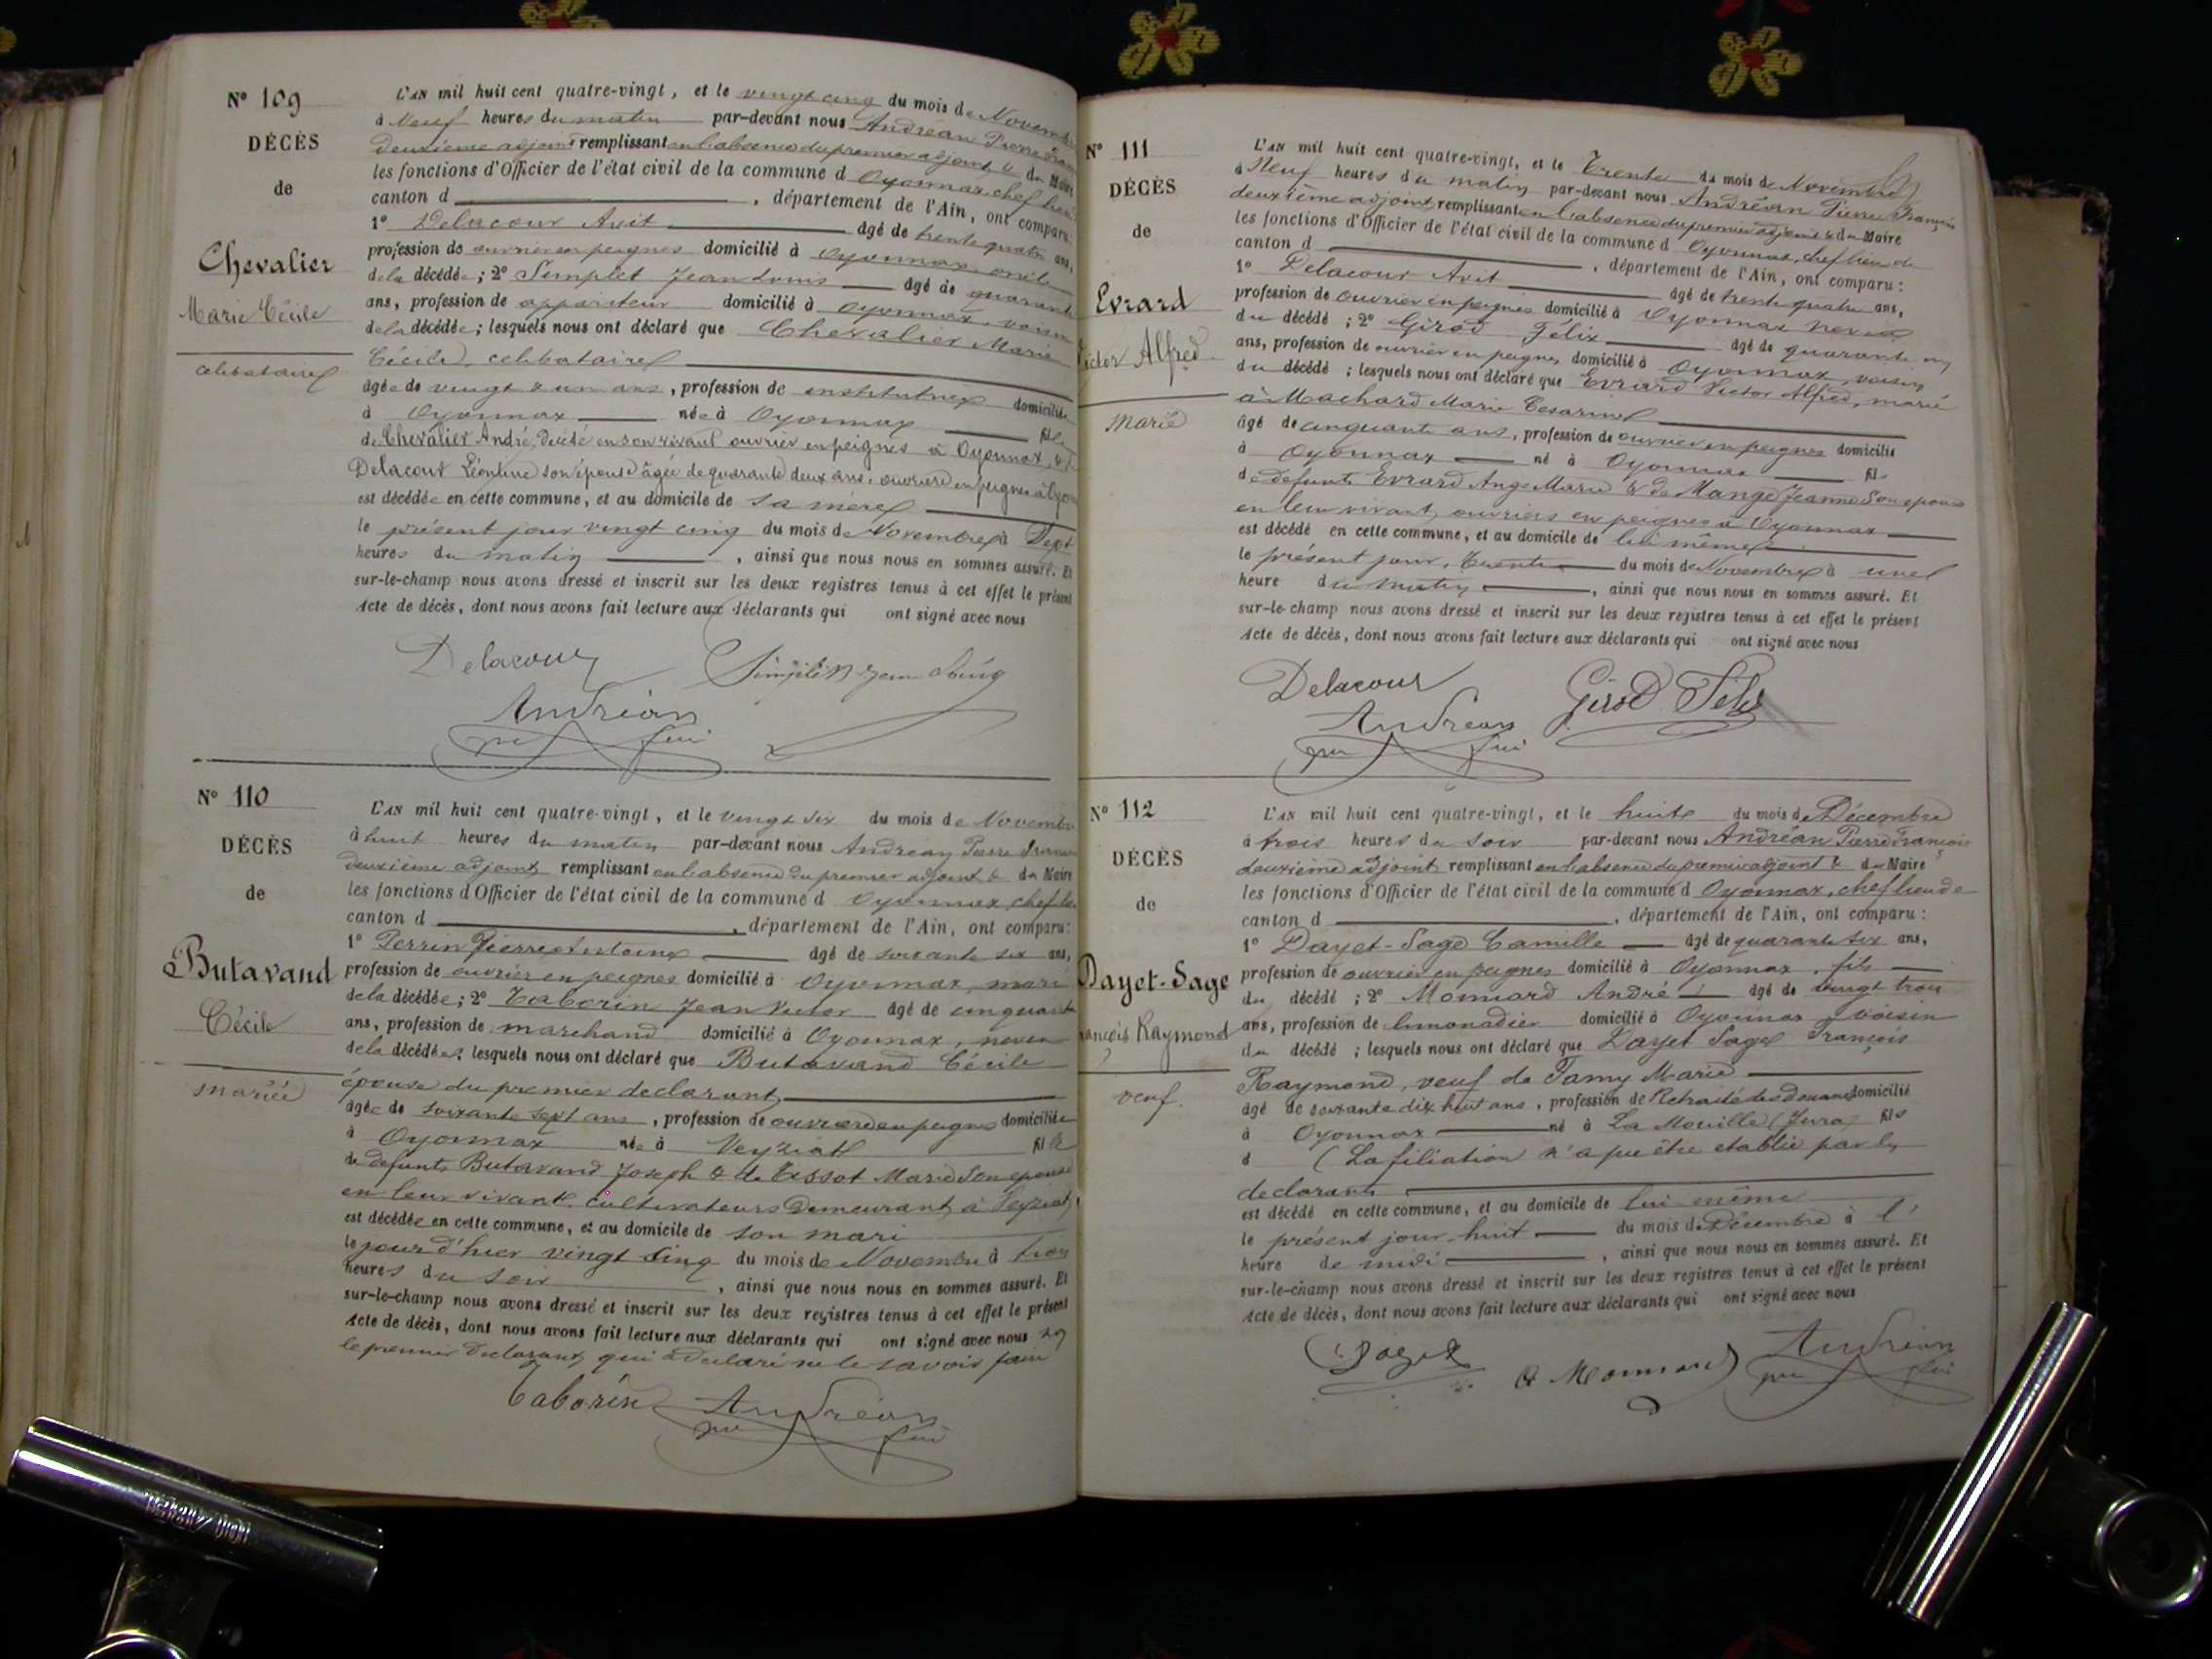 Nº 109
DÉCÈS
de
Chevalier
Marie Cécile
célibataire
L'AN mil huit cent quatre-vingt, et le vingt cinq du mois de Novembre
à Neuf heures du matin par-devant nous Andréan Pierre
deuxième adjoint remplissant en l'absence du premier adjoint & du Maire
les fonctions d'Officier de l'état civil de la commune d Oyonnax, chef lieu
canton d , département de l'Ain, ont comparu:
1º Delacour Avit âgé de trente quatre ans,
profession de ouvrier en peignes domicilié à Oyonnax, oncle
de la décédée; 2º Simplet Jean Louis âgé de quarante
ans, profession de appariteur domicilié à Oyonnax, voisin
de la décédée; lesquels nous ont déclaré que Chevalier Marie
Cécile, célibataire
âgée de vingt & un ans, profession de institutrice domiciliée
à Oyonnax née à Oyonnax fille
de Chevalier André, décédé en son vivant ouvrier en peignes à Oyonnax, & de
Delacour Léontine son épouse âgée de quarante deux ans, ouvrière en peignes à Oyonnax
est décédée en cette commune, et au domicile de sa mère
le présent jour vingt cinq du mois de Novembre à Sept
heures du matin , ainsi que nous nous en sommes assuré. Et
sur-le-champ nous avons dressé et inscrit sur les deux registres tenus à cet effet le présent
Acte de décès, dont nous avons fait lecture aux déclarants qui ont signé avec nous
Delacour Jean
Andréan
Nº 110
DÉCÈS
de
Butavand
Cécile
mariée
L'AN mil huit cent quatre-vingt, et le vingt six du mois de Novembre
à huit heures du matin par-devant nous Andréan Pierre
deuxième adjoint remplissant en l'absence du premier adjoint & du Maire
les fonctions d'Officier de l'état civil de la commune d Oyonnax, chef lieu
canton d , département de l'Ain, ont comparu:
1º Perrin Pierre Antoine âgé de soixante six ans,
profession de ouvrier en peignes domicilié à Oyonnax, mari
de la décédée; 2º Taborin Jean Victor âgé de cinquante
ans, profession de marchand domicilié à Oyonnax, neveu
de la décédée; lesquels nous ont déclaré que Butavand Cécile
épouse du premier declarant,
âgée de soixante sept ans, profession de ouvrière en peignes domiciliée
à Oyonnax née à Veyziat fille
de défunts Butavand Joseph & de Tissot Marie son épouse
en leur vivant cultivateurs demeurant à Veyziat,
est décédée en cette commune, et au domicile de son mari
le jour d'hier vingt cinq du mois de Novembre à trois
heures du soir , ainsi que nous nous en sommes assuré. Et
sur-le-champ nous avons dressé et inscrit sur les deux registres tenus à cet effet le présent
Acte de décès, dont nous avons fait lecture aux déclarants qui ont signé avec nous
le premier declarant, qui a declaré ne le savoir faire
Taborin Andréan
Nº 111
DÉCÈS
de
Evrard
Victor Alfred
Marié
L'AN mil huit cent quatre-vingt, et le Trente du mois de Novembre
à Neuf heures du matin par-devant nous Andréan Pierre François
deuxième adjoint, remplissant en l'absence du premier adjoint & du Maire
les fonctions d'Officier de l'état civil de la commune d Oyonnax, chef lieu de
canton d , département de l'Ain, ont comparu:
1º Delacour Avit âgé de trente quatre ans,
profession de ouvrier en peignes domicilié à Oyonnax neveu
du décédé; 2º Girod Félix âgé de quarante
ans, profession de ouvrier en peignes domicilié à Oyonnax, voisin
du décédé; lesquels nous ont déclaré que Evrard Victor Alfred, marié
à Machard Marie Cesarine
âgé de cinquante ans, profession de ouvrier en peignes domicilié
à Oyonnax né à Oyonnax fils
de défunts Evrard Ange Marie & de Mange Jeanne son épouse
en leur vivant, ouvriers en peignes à Oyonnax
est décédé en cette commune, et au domicile de lui même
le présent jour, Trente du mois de Novembre à une
heure du matin , ainsi que nous nous en sommes assuré. Et
sur-le-champ nous avons dressé et inscrit sur les deux registres tenus à cet effet le présent
Acte de décès, dont nous avons fait lecture aux déclarants qui ont signé avec nous
Delacour Girod Félix
Andréan
Nº 112
DÉCÈS
de
Dayet-Sage
François Raymond
veuf.
L'AN mil huit cent quatre-vingt, et le huite du mois de Décembre
à trois heures du soir par-devant nous Andréan Pierre François
deuxième adjoint remplissant en l'absence du premier adjoint & du Maire
les fonctions d'Officier de l'état civil de la commune d Oyonnax, chef lieu de
canton d , département de l'Ain, ont comparu:
1º Dayet-Sage Camille âgé de quarante six ans,
profession de ouvrier en peignes domicilié à Oyonnax, fils
du décédé; 2º Monnard André âgé de vingt trois
ans, profession de limonadier domicilié à Oyonnax, voisin
du décédé; lesquels nous ont déclaré que Dayet Sage François
Raymond, veuf de Famy Marie
âgé de soixante dix huit ans, profession de Retraité des douanes domicilié
à Oyonnax né à La Mouille (Jura) fils
d (La filiation n'a pu être etablie par les
declarants
est décédé en cette commune, et au domicile de lui même
le présent jour huit du mois de Décembre à l'
heure de midi , ainsi que nous nous en sommes assuré. Et
sur-le-champ nous avons dressé et inscrit sur les deux registres tenus à cet effet le présent
Acte de décès, dont nous avons fait lecture aux déclarants qui ont signé avec nous
A Monnard Andréan